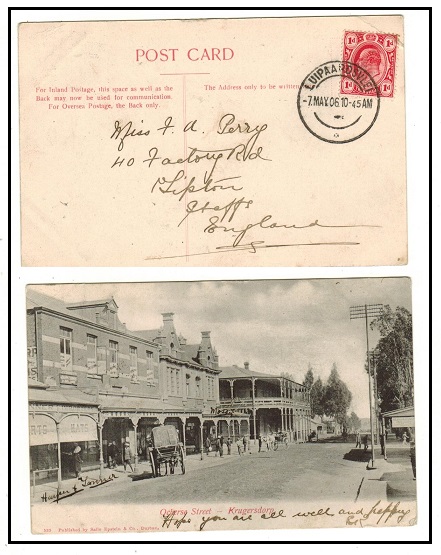 POST CARD
For Inland Postage, this space as well as the
Back may now be used for communication.
For Oversea Postage, the Back only.
The Address only to be written
LUIPAARDSVLEI
7.MAY.06.10-45AM
1d 1d
1d 1d
Miss F. A. Perry
40 Factory Rd
Tipton
Staffs
England
HATS
Ockerse Street – Krugersdorp
Published by Sallo Epstein & Co., Durban.
Hope you are all well and happy